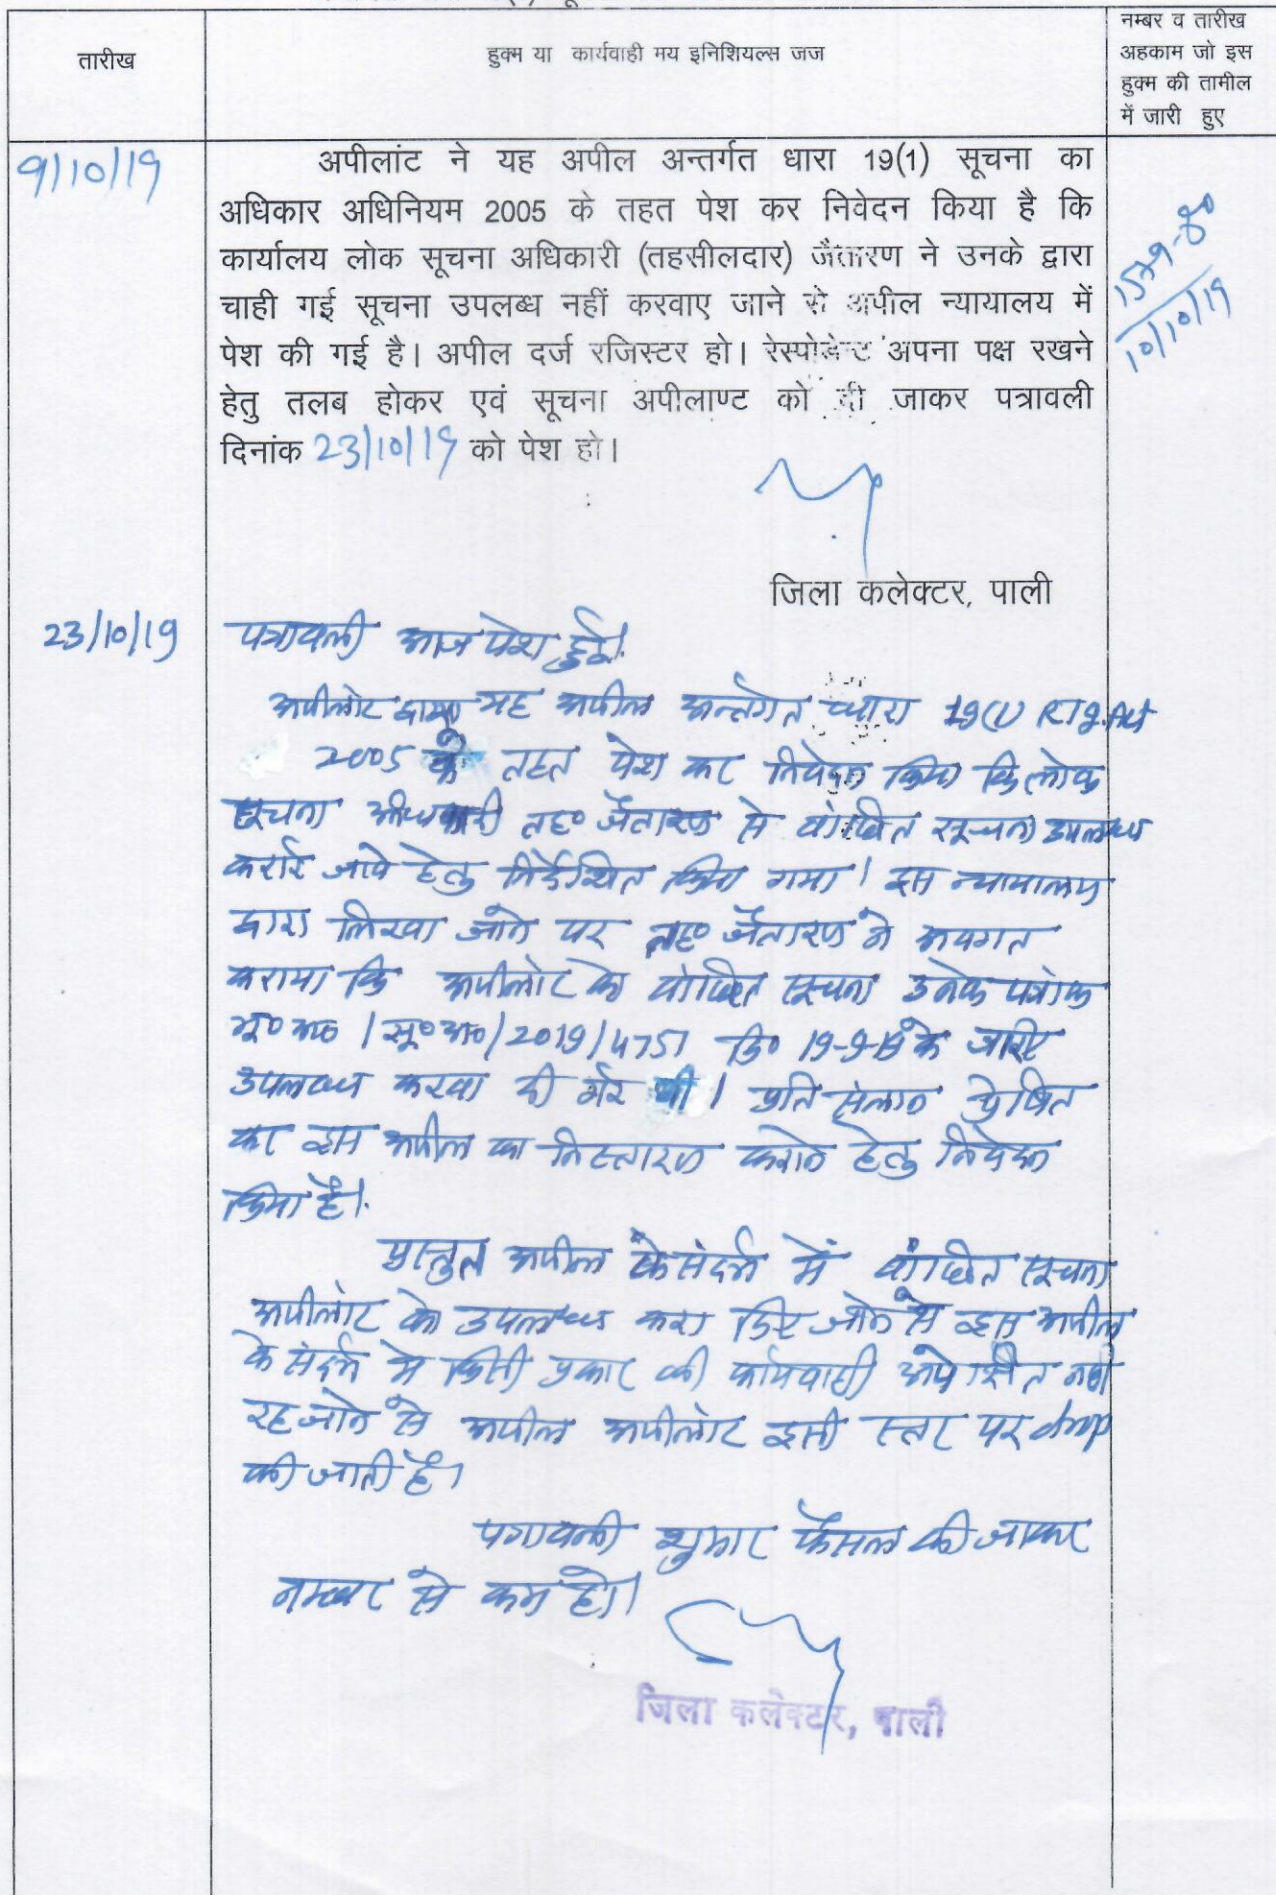 तारीख
हुक्म या कार्यवाही मय इनिशियल्स जज
नम्बर व तारीख
अहकाम जो इस
हुक्म की तामील
में जारी हुए
9/10/19
अपीलांट ने यह अपील अन्तर्गत धारा 19(1) सूचना का
अधिकार अधिनियम 2005 के तहत पेश कर निवेदन किया है कि
कार्यालय लोक सूचना अधिकारी (तहसीलदार) जैतारण ने उनके द्वारा
चाही गई सूचना उपलब्ध नहीं करवाए जाने से अपील न्यायालय में
पेश की गई है। अपील दर्ज रजिस्टर हो। रेस्पोडेन्ट अपना पक्ष रखने
हेतु तलब होकर एवं सूचना अपीलाण्ट को दी जाकर पत्रावली
दिनांक 23/10/19 को पेश हो।
1579-80
10/10/19
जिला कलेक्टर, पाली
23/10/19
पत्रावली आज पेश हुई।
अपीलांट द्वारा यह अपील अन्तर्गत धारा 19(1) RTI Act
2005 के तहत पेश कर निवेदन किया कि लोक
सूचना अधिकारी तह० जैतारण से वांछित सूचना उपलब्ध
कराई जावे हेतु निर्देशित किया गया। इस न्यायालय
द्वारा लिखा जाने पर तह० जैतारण ने अवगत
कराया कि अपीलांट को वांछित सूचना उनके पत्रांक
भू०अ० / सू०अ०/2019/4751 दि० 19-9-19 के जरिए
उपलब्ध करवा दी गई थी। प्रति संलग्न प्रेषित
कर इस अपील का निस्तारण कराने हेतु निवेदन
किया है।
प्रस्तुत अपील के संदर्भ में वांछित सूचना
अपीलांट को उपलब्ध करा दिए जाने से इस अपील
के संदर्भ मे किसी प्रकार की कार्यवाही अपेक्षित नहीं
रह जाने से अपील अपीलांट इसी स्तर पर drop
की जाती है।
पत्रावली शुमार फैसल की जाकर
नम्बर से कम हो।
जिला कलेक्टर, पाली